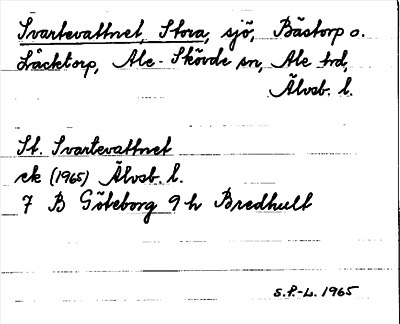 Svartevattnet, Stora, sjö, Bästorp o.
Låcktorp, Ale-Skövde sn, Ale hd,
Älvsb. l.
St. Svartevattnet
ek (1965) Älvsb. l.
7 B Göteborg 9 h Bredhult
S.P.-L. 1965